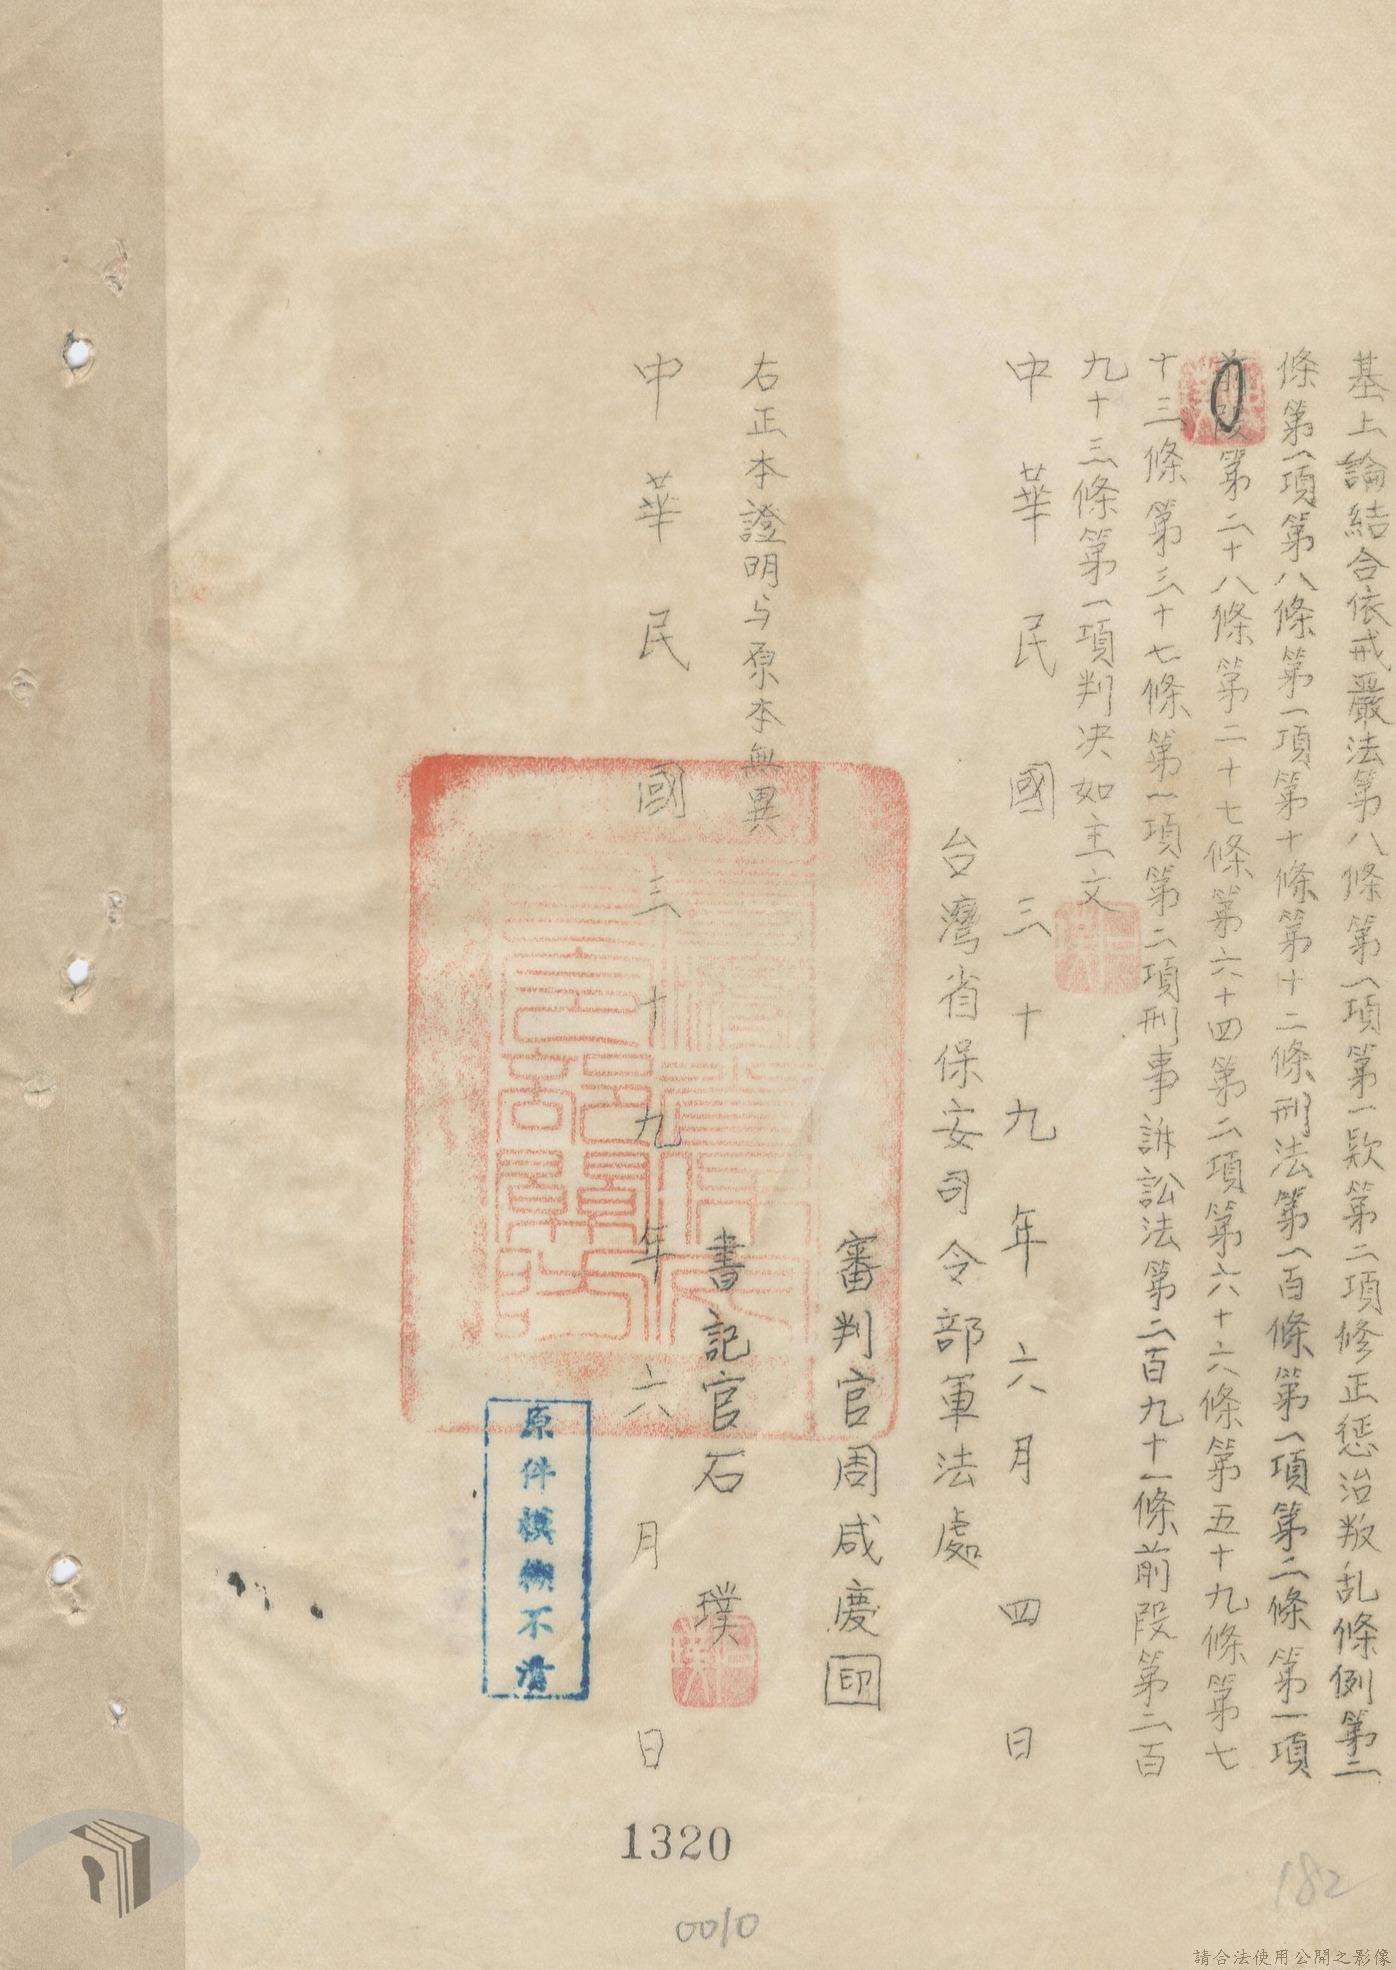 基上論結合依戒嚴法第八條第一項第一款第二項修正惩治叛乱條例第二
條第一項第八條第一項第十條第十二條刑法第一百條第一項第二條第一項
前段第二十八條第二十七條第六十四第二項第六十六條第五十九條第七
十三條第三十七條第一項第二項刑事訴訟法第二百九十一條前段第二百
九十三條第一項判决如主文
中華民國三十九年六月四日
台灣省保安司令部軍法處
審判官周咸慶印
右正本證明与原本無異
書記官石璞
中華民國三十九年六月 日
原件模糊不清
1320
0010
182
請合法使用公開之影像